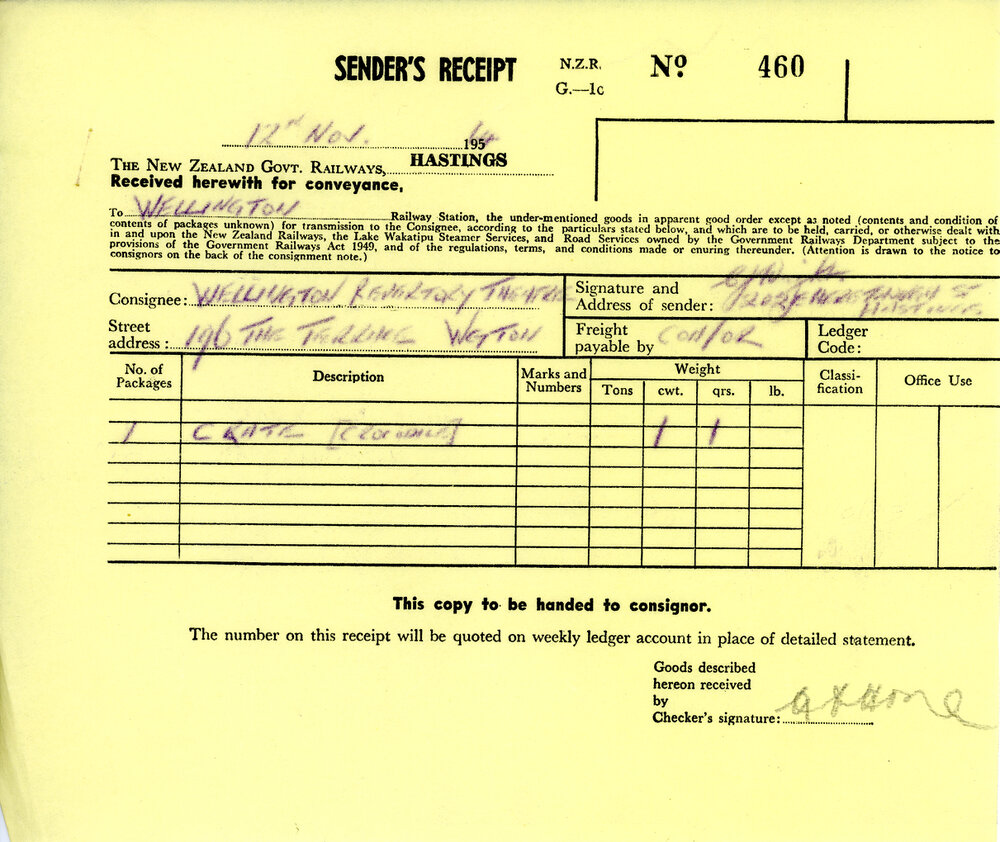 SENDER'S RECEIPT
N.Z.R.
G.—1c
No 460
12th Nov. 1954
THE NEW ZEALAND GOVT. RAILWAYS, HASTINGS
Received herewith for conveyance,
To WELLINGTON Railway Station, the under-mentioned goods in apparent good order except as noted (contents and condition of
contents of packages unknown) for transmission to the Consignee, according to the particulars stated below, and which are to be held, carried, or otherwise dealt with
in and upon the New Zealand Railways, the Lake Wakatipu Steamer Services, and Road Services owned by the Government Railways Department subject to the
provisions of the Government Railways Act 1949, and of the regulations, terms, and conditions made or enuring thereunder. (Attention is drawn to the notice to
consignors on the back of the consignment note.)
Consignee: WELLINGTON REPERTORY THEATRE
Signature and
Address of sender:
HASTINGS
Street
address: 196 THE TERRACE WGTON
Freight
payable by
Ledger
Code:
No. of
Packages
Description
Marks and
Numbers
Weight
Tons cwt. qrs. lb.
Classi-
fication
Office Use
1 CRATE 1 1
This copy to be handed to consignor.
The number on this receipt will be quoted on weekly ledger account in place of detailed statement.
Goods described
hereon received
by
Checker's signature: